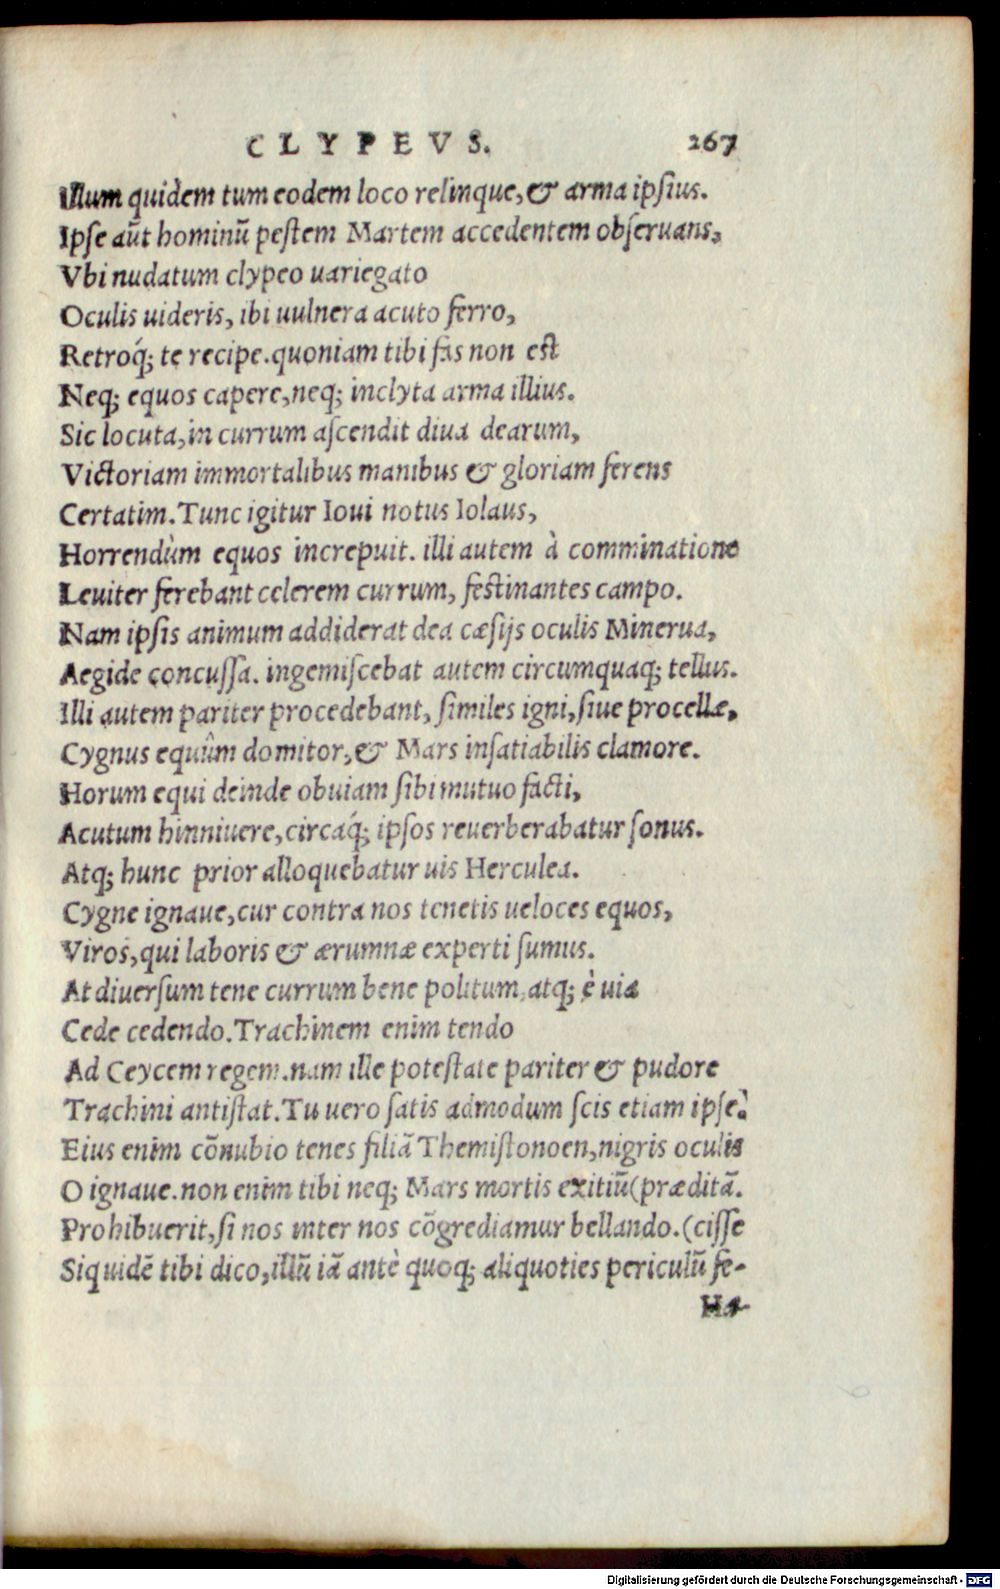 CLYPEVS. 267
Illum quidem tum eodem loco relinque, & arma ipsius.
Ipse aūt hominū pestem Martem accedentem obseruans,
Vbi nudatum clypeo uariegato
Oculis uideris, ibi uulnera acuto ferro,
Retroq́; te recipe. quoniam tibi fas non est
Neq; equos capere, neq; inclyta arma illius.
Sic locuta, in currum ascendit diua dearum,
Victoriam immortalibus manibus & gloriam ferens
Certatim. Tunc igitur Ioui notus Iolaus,
Horrendùm equos increpuit. illi autem à comminatione
Leuiter ferebant celerem currum, festinantes campo.
Nam ipsis animum addiderat dea cæsijs oculis Minerua,
Aegide concussa. ingemiscebat autem circumquaq; tellus.
Illi autem pariter procedebant, similes igni, siue procellæ,
Cygnus equûm domitor, & Mars insatiabilis clamore.
Horum equi deinde obuiam sibi mutuo facti,
Acutum hinniuere, circaq́; ipsos reuerberabatur sonus.
Atq; hunc prior alloquebatur uis Herculea.
Cygne ignaue, cur contra nos tenetis ueloces equos,
Viros, qui laboris & ærumnæ experti sumus.
At diuersum tene currum bene politum, atq; è uia
Cede cedendo. Trachinem enim tendo
Ad Ceycem regem. nam ille potestate pariter & pudore
Trachini antistat. Tu uero satis admodum scis etiam ipse.
Eius enim cōnubio tenes filiā Themistonoen, nigris oculis
O ignaue. non enim tibi neq; Mars mortis exitiū (præditā.
Prohibuerit, si nos inter nos cōgrediamur bellando. (cisse
Siquidē tibi dico, illū iā antè quoq; aliquoties periculū fe-
Ha-
Digitalisierung gefördert durch die Deutsche Forschungsgemeinschaft - DFG